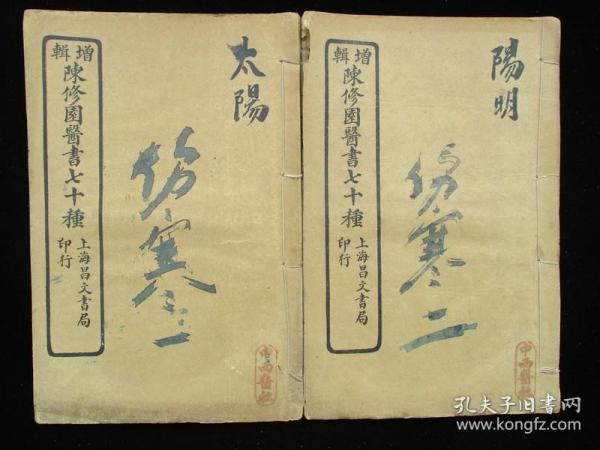 增輯陳修園醫書七十種
上海昌文書局印行
太陽
伤寒一
中西醫社
增輯陳修園醫書七十種
上海昌文書局印行
陽明
伤寒二
中西醫社
孔夫子旧书网
www.kongfz.com